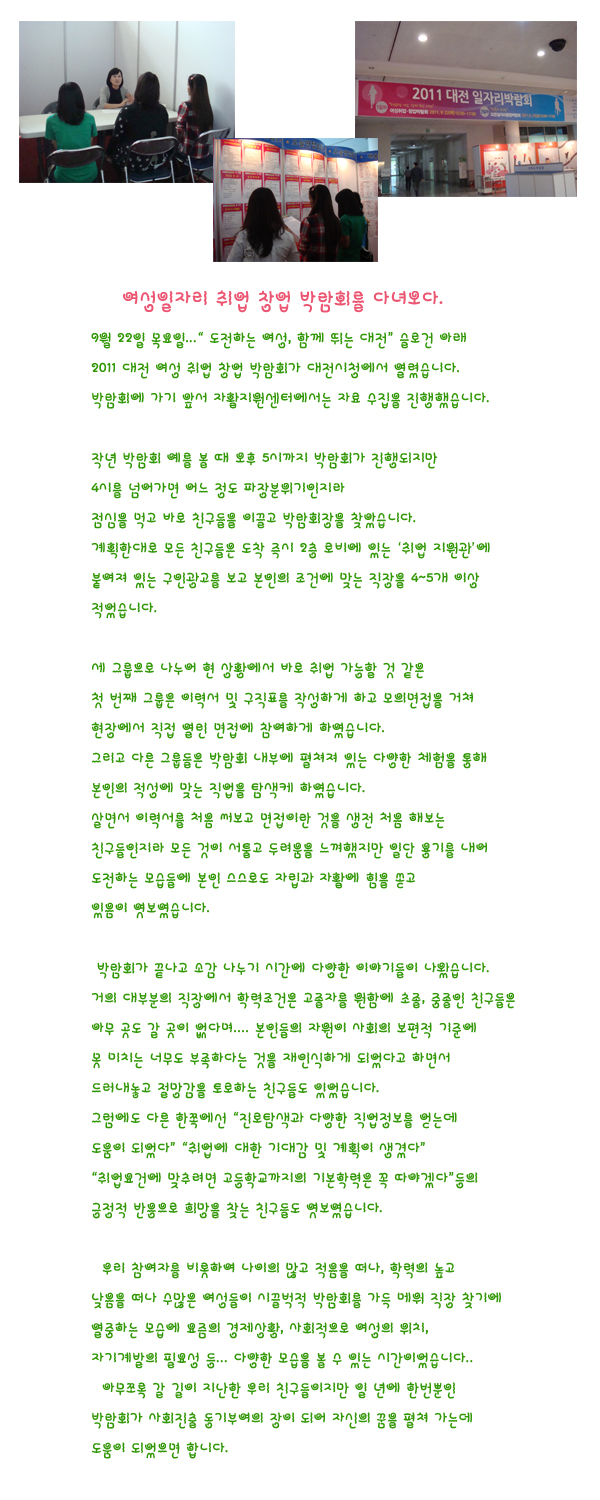 2011 대전 일자리박람회
여성일자리 취업 창업 박람회를 다녀오다.
9월 22일 목요일...“ 도전하는 여성, 함께 뛰는 대전” 슬로건 아래
2011 대전 여성 취업 창업 박람회가 대전시청에서 열렸습니다.
박람회에 가기 앞서 자활지원센터에서는 자료 수집을 진행했습니다.
작년 박람회 예를 볼 때 오후 5시까지 박람회가 진행되지만
4시를 넘어가면 어느 정도 파장분위기인지라
점심을 먹고 바로 친구들을 이끌고 박람회장을 찾았습니다.
계획한대로 모든 친구들은 도착 즉시 2층 로비에 있는 ‘취업 지원관’에
붙여져 있는 구인광고를 보고 본인의 조건에 맞는 직장을 4~5개 이상
적었습니다.
세 그룹으로 나누어 현 상황에서 바로 취업 가능할 것 같은
첫 번째 그룹은 이력서 및 구직표를 작성하게 하고 모의면접을 거쳐
현장에서 직접 열린 면접에 참여하게 하였습니다.
그리고 다른 그룹들은 박람회 내부에 펼쳐져 있는 다양한 체험을 통해
본인의 적성에 맞는 직업을 탐색케 하였습니다.
살면서 이력서를 처음 써보고 면접이란 것을 생전 처음 해보는
친구들인지라 모든 것이 서툴고 두려움을 느껴했지만 일단 용기를 내어
도전하는 모습들에 본인 스스로도 자립과 자활에 힘을 쏟고
있음이 엿보였습니다.
박람회가 끝나고 소감 나누기 시간에 다양한 이야기들이 나왔습니다.
거의 대부분의 직장에서 학력조건은 고졸자를 원함에 초졸, 중졸인 친구들은
아무 곳도 갈 곳이 없다며.... 본인들의 자원이 사회의 보편적 기준에
못 미치는 너무도 부족하다는 것을 재인식하게 되었다고 하면서
드러내놓고 절망감을 토로하는 친구들도 있었습니다.
그럼에도 다른 한쪽에선 “진로탐색과 다양한 직업정보를 얻는데
도움이 되었다” “취업에 대한 기대감 및 계획이 생겼다”
“취업요건에 맞추려면 고등학교까지의 기본학력은 꼭 따야겠다”등의
긍정적 반응으로 희망을 찾는 친구들도 엿보였습니다.
우리 참여자를 비롯하여 나이의 많고 적음을 떠나, 학력의 높고
낮음을 떠나 수많은 여성들이 시끌벅적 박람회를 가득 메워 직장 찾기에
열중하는 모습에 요즘의 경제상황, 사회적으로 여성의 위치,
자기계발의 필요성 등... 다양한 모습을 볼 수 있는 시간이었습니다..
아무쪼록 갈 길이 지난한 우리 친구들이지만 일 년에 한번뿐인
박람회가 사회진출 동기부여의 장이 되어 자신의 꿈을 펼쳐 가는데
도움이 되었으면 합니다.